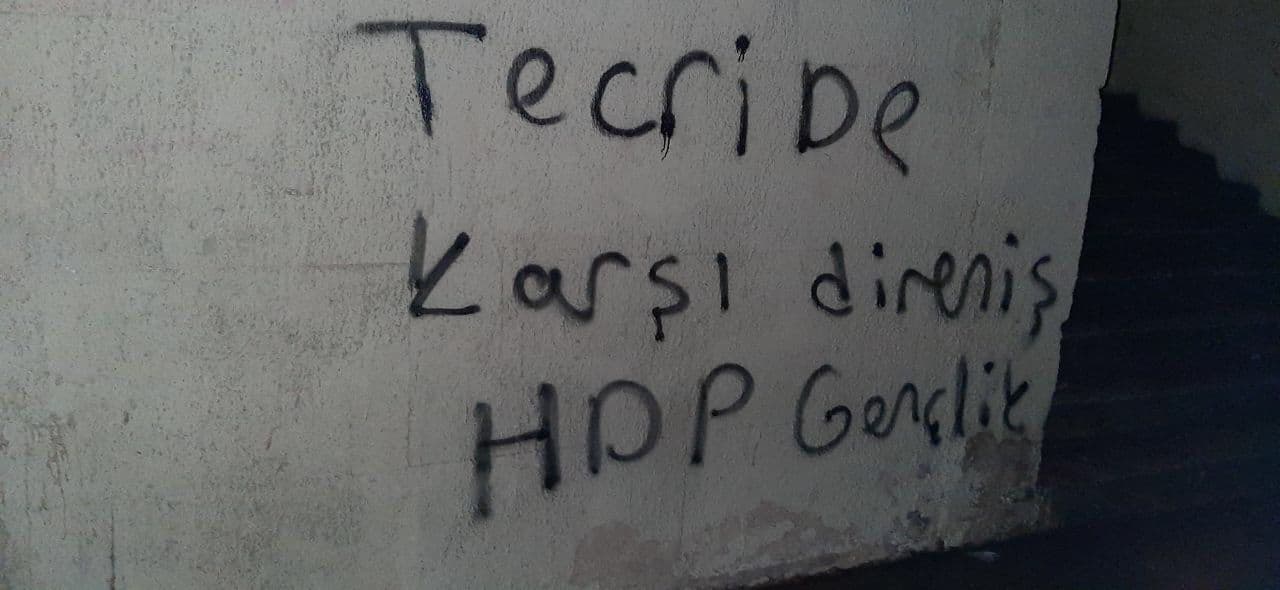 Tecride
Karşı direniş
HDP Gençlik